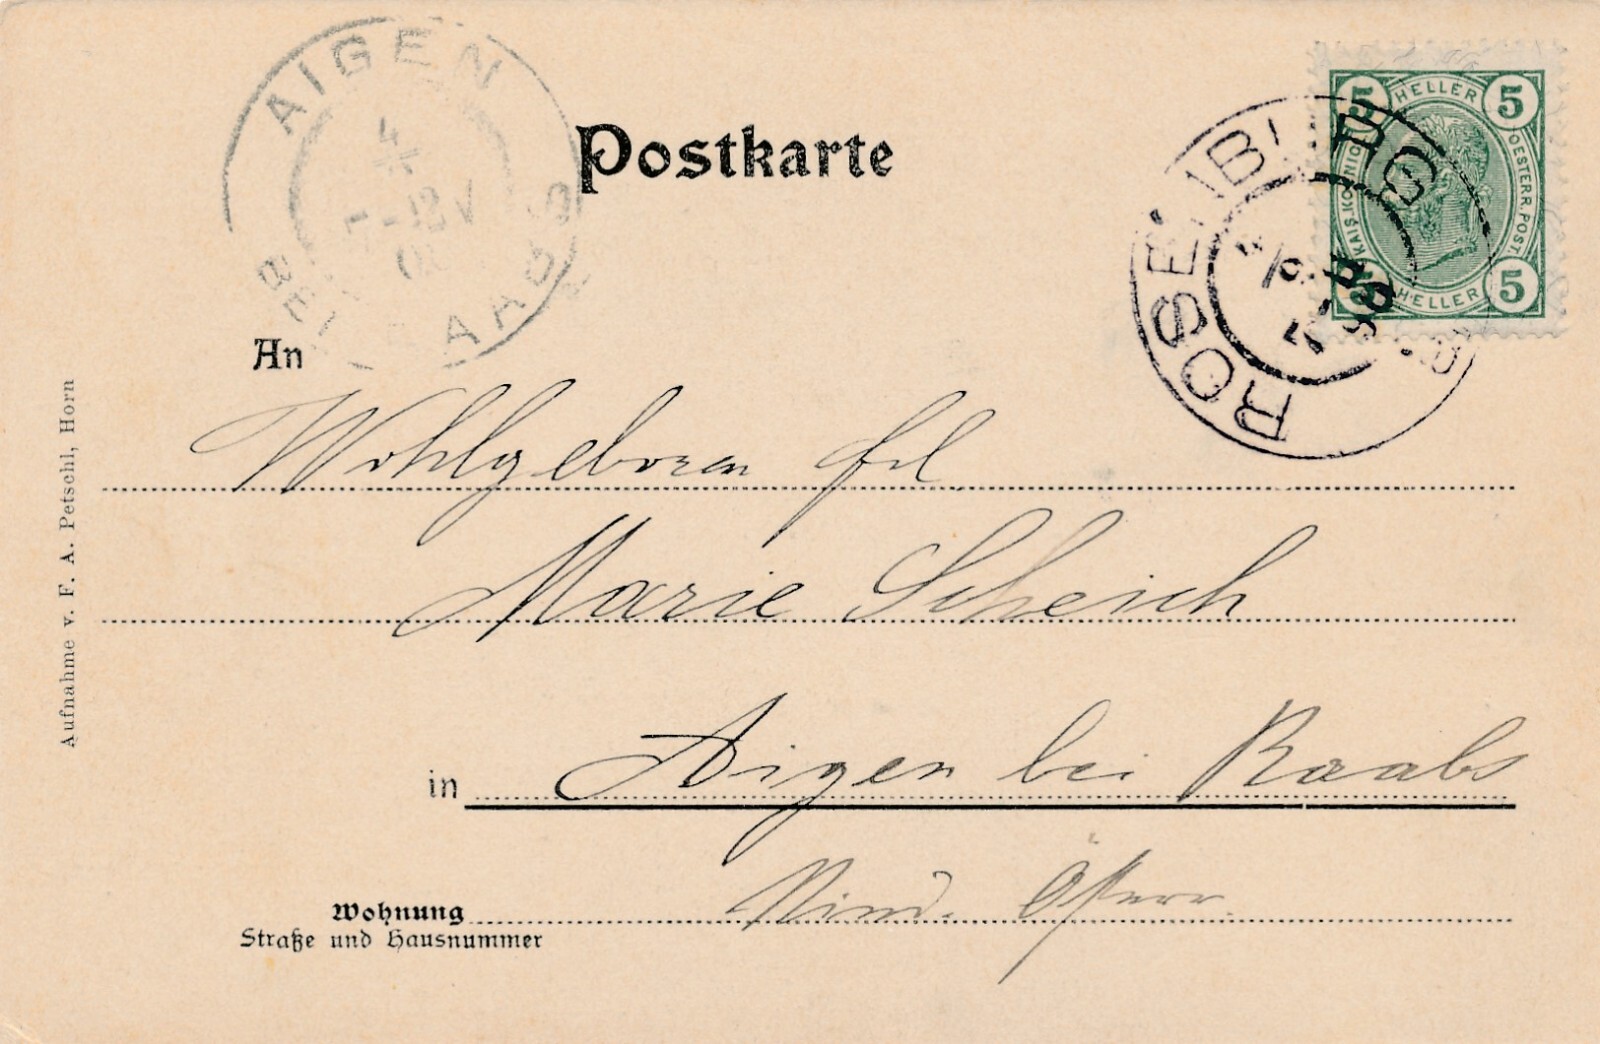 AIGEN
AABS
Postkarte
ROSENBURG
5 HELLER 5
KAIS. KÖNIGL.
OESTERR. POST.
5 HELLER 5
An
Wohlgeboren Frl
Marie Scheich
in Aigen bei Raabs
Wohnung
Straße und Hausnummer
Nied. Österr.
Aufnahme v. F. A. Petschl, Horn